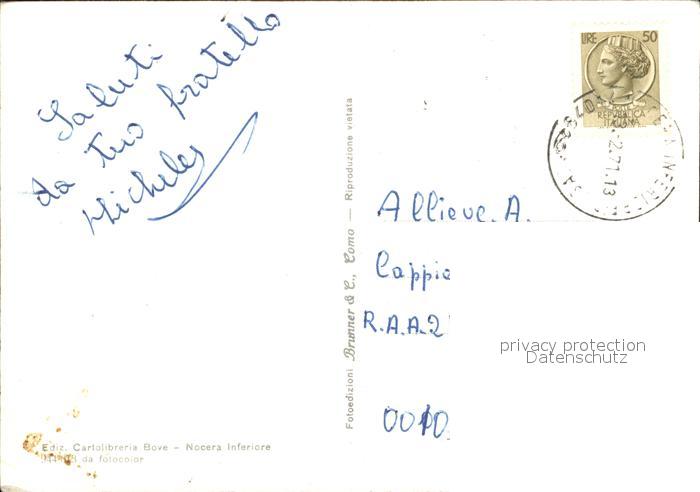 Saluti
da tuo fratello
Michele
LIRE 50
REPUBBLICA
ITALIANA
2.71.13
Fotoedizioni Brunner & C., Como — Riproduzione vietata
Allieve. A.
Cappie
R.A.A.2
privacy protection
Datenschutz
Ediz. Cartolibreria Bove - Nocera Inferiore
da fotocolor